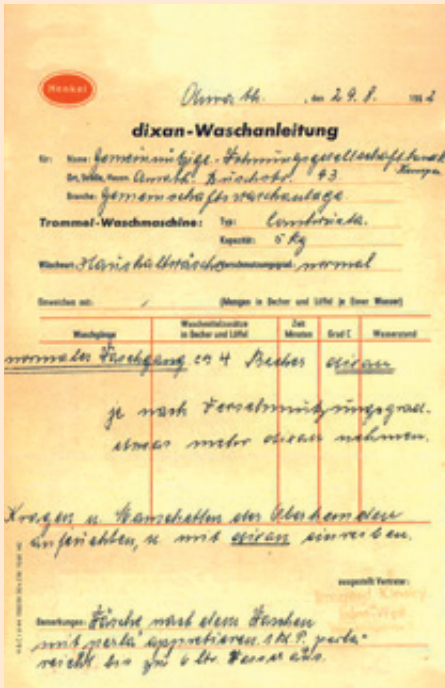 Henkel
Anrath, den 29.8. 1962
dixan-Waschanleitung
für: Name: Gemeinnützige-Wohnungsgesellschaft
Ort, Straße, Hausnr. Anrath. Buschstr. 43
Branche: Gemeinschaftswaschanlage
Trommel-Waschmaschine: Typ:
Kapazität: 5 Kg
Wäscheart: Haushaltwäsche Verschmutzungsgrad: normal
Einweichen mit: / (Mengen in Becher und Löffel je Liter Wasser)
Waschgänge Waschmittelzusätze in Becher und Löffel Zeit Minuten Grad C Wasserstand
normaler Waschgang ca 4 Becher dixan
je nach Verschmutzungsgrad.
etwas mehr dixan nehmen.
Kragen u. Manschetten der Oberhemden
anfeuchten, u. mit dixan einreiben.
ausgestellt Vertreter:
Bemerkungen: Wäsche nach dem Waschen
mit perla appretieren. 1 kl. P. perla
reicht bis zu 6 ltr. Wasser aus.